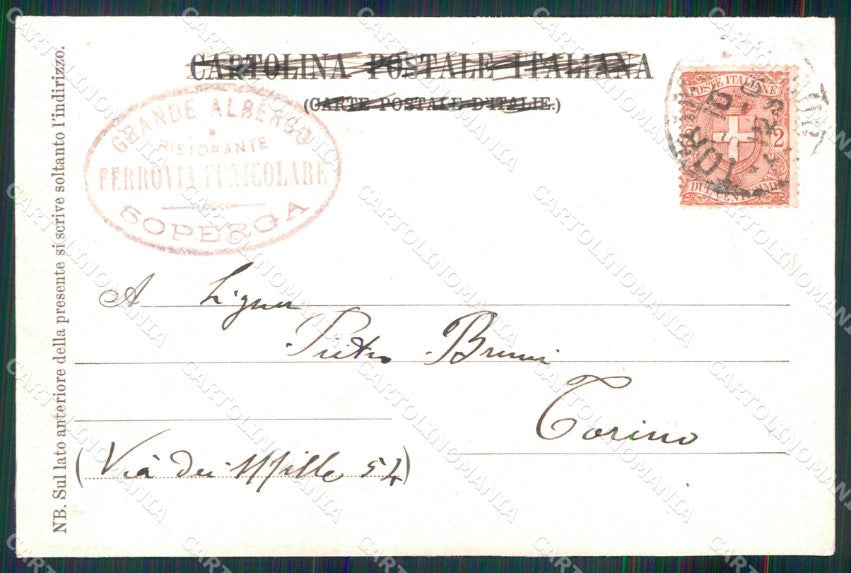 CARTOLINA POSTALE ITALIANA
(CARTE POSTALE D'ITALIE.)
GRANDE ALBERGO
RISTORANTE
FERROVIA FUNICOLARE
SOPERGA
POSTE ITALIANE
2
TORINO
NB. Sul lato anteriore della presente si scrive soltanto l'indirizzo.
A Signor
Pietro Bruni
Torino
(Via dei Mille 54)
CARTOLINOMANIA